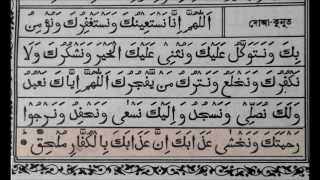 দোয়া-কুনুত
اَللّٰهُمَّ اِنَّا نَسْتَعِيْنُكَ وَنَسْتَغْفِرُكَ وَنُؤْمِنُ
بِكَ وَنَتَوَكَّلُ عَلَيْكَ وَنُثْنِىْ عَلَيْكَ الْخَيْرَ وَنَشْكُرُكَ وَلَا
نَكْفُرُكَ وَنَخْلَعُ وَنَتْرُكُ مَنْ يَّفْجُرُكَ اَللّٰهُمَّ اِيَّاكَ نَعْبُدُ
وَلَكَ نُصَلِّىْ وَنَسْجُدُ وَاِلَيْكَ نَسْعٰى وَنَحْفِدُ وَنَرْجُوْا
رَحْمَتَكَ وَنَخْشٰى عَذَابَكَ اِنَّ عَذَابَكَ بِالْكُفَّارِ مُلْحِقٌ